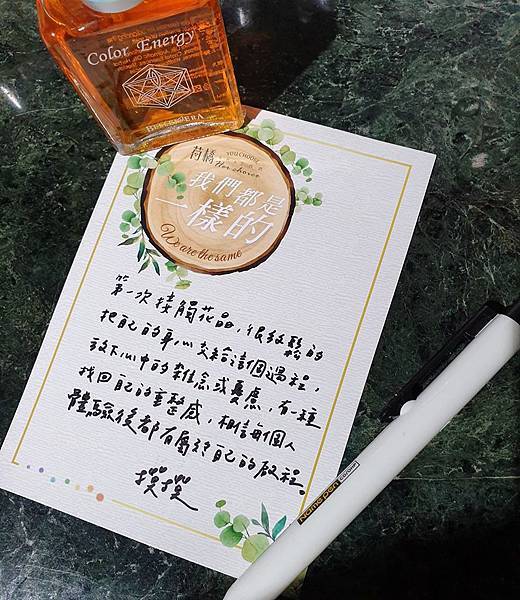 Color Energy
荷橋
YOU CHOOSE
Her choice
我們都是
一樣的
We are the same
第一次接觸花晶，很放鬆的
把自己的身心交給這個過程，
放下心中的雜念或憂慮，有一種
找回自己的完整感，相信每個人
體驗後都有屬於自己的啟程。
Name Pen